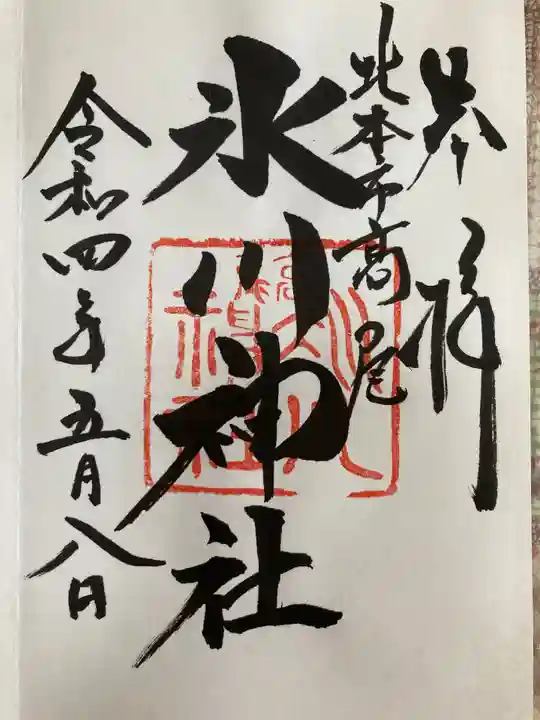 奉拝
北本市高尾
氷川神社
令和四年五月八日